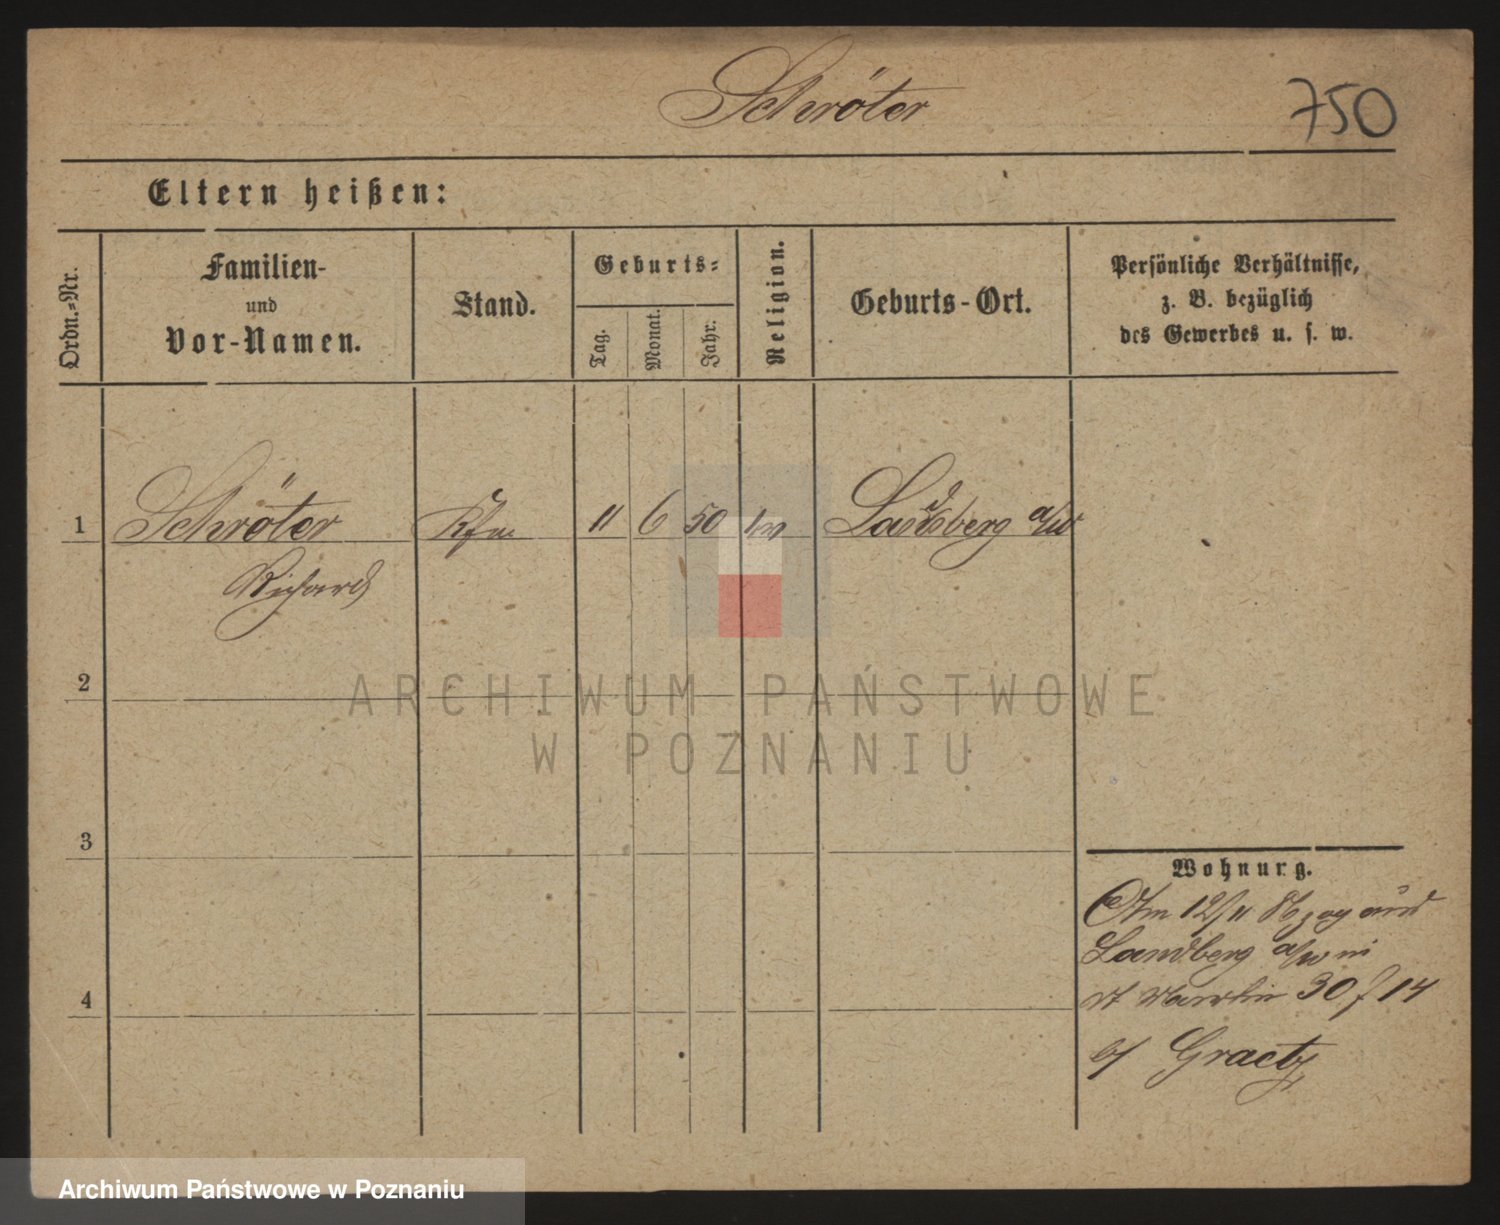 Schröter
750
Eltern heißen:
Ordn.-Nr.
Familien-
und
Vor-Namen.
Stand.
Geburts-
Tag.
Monat.
Jahr.
Religion.
Geburts-Ort.
Persönliche Verhältnisse,
z. B. bezüglich
des Gewerbes u. s. w.
1
Schröter
Kfm.
11
6
50
Landsberg a/W
Richard
2
3
4
Wohnung.
Am 12/11
Landberg a/w in
St Martin 30 f 14
b/ Graetz
ARCHIWUM PAŃSTWOWE
W POZNANIU
Archiwum Państwowe w Poznaniu